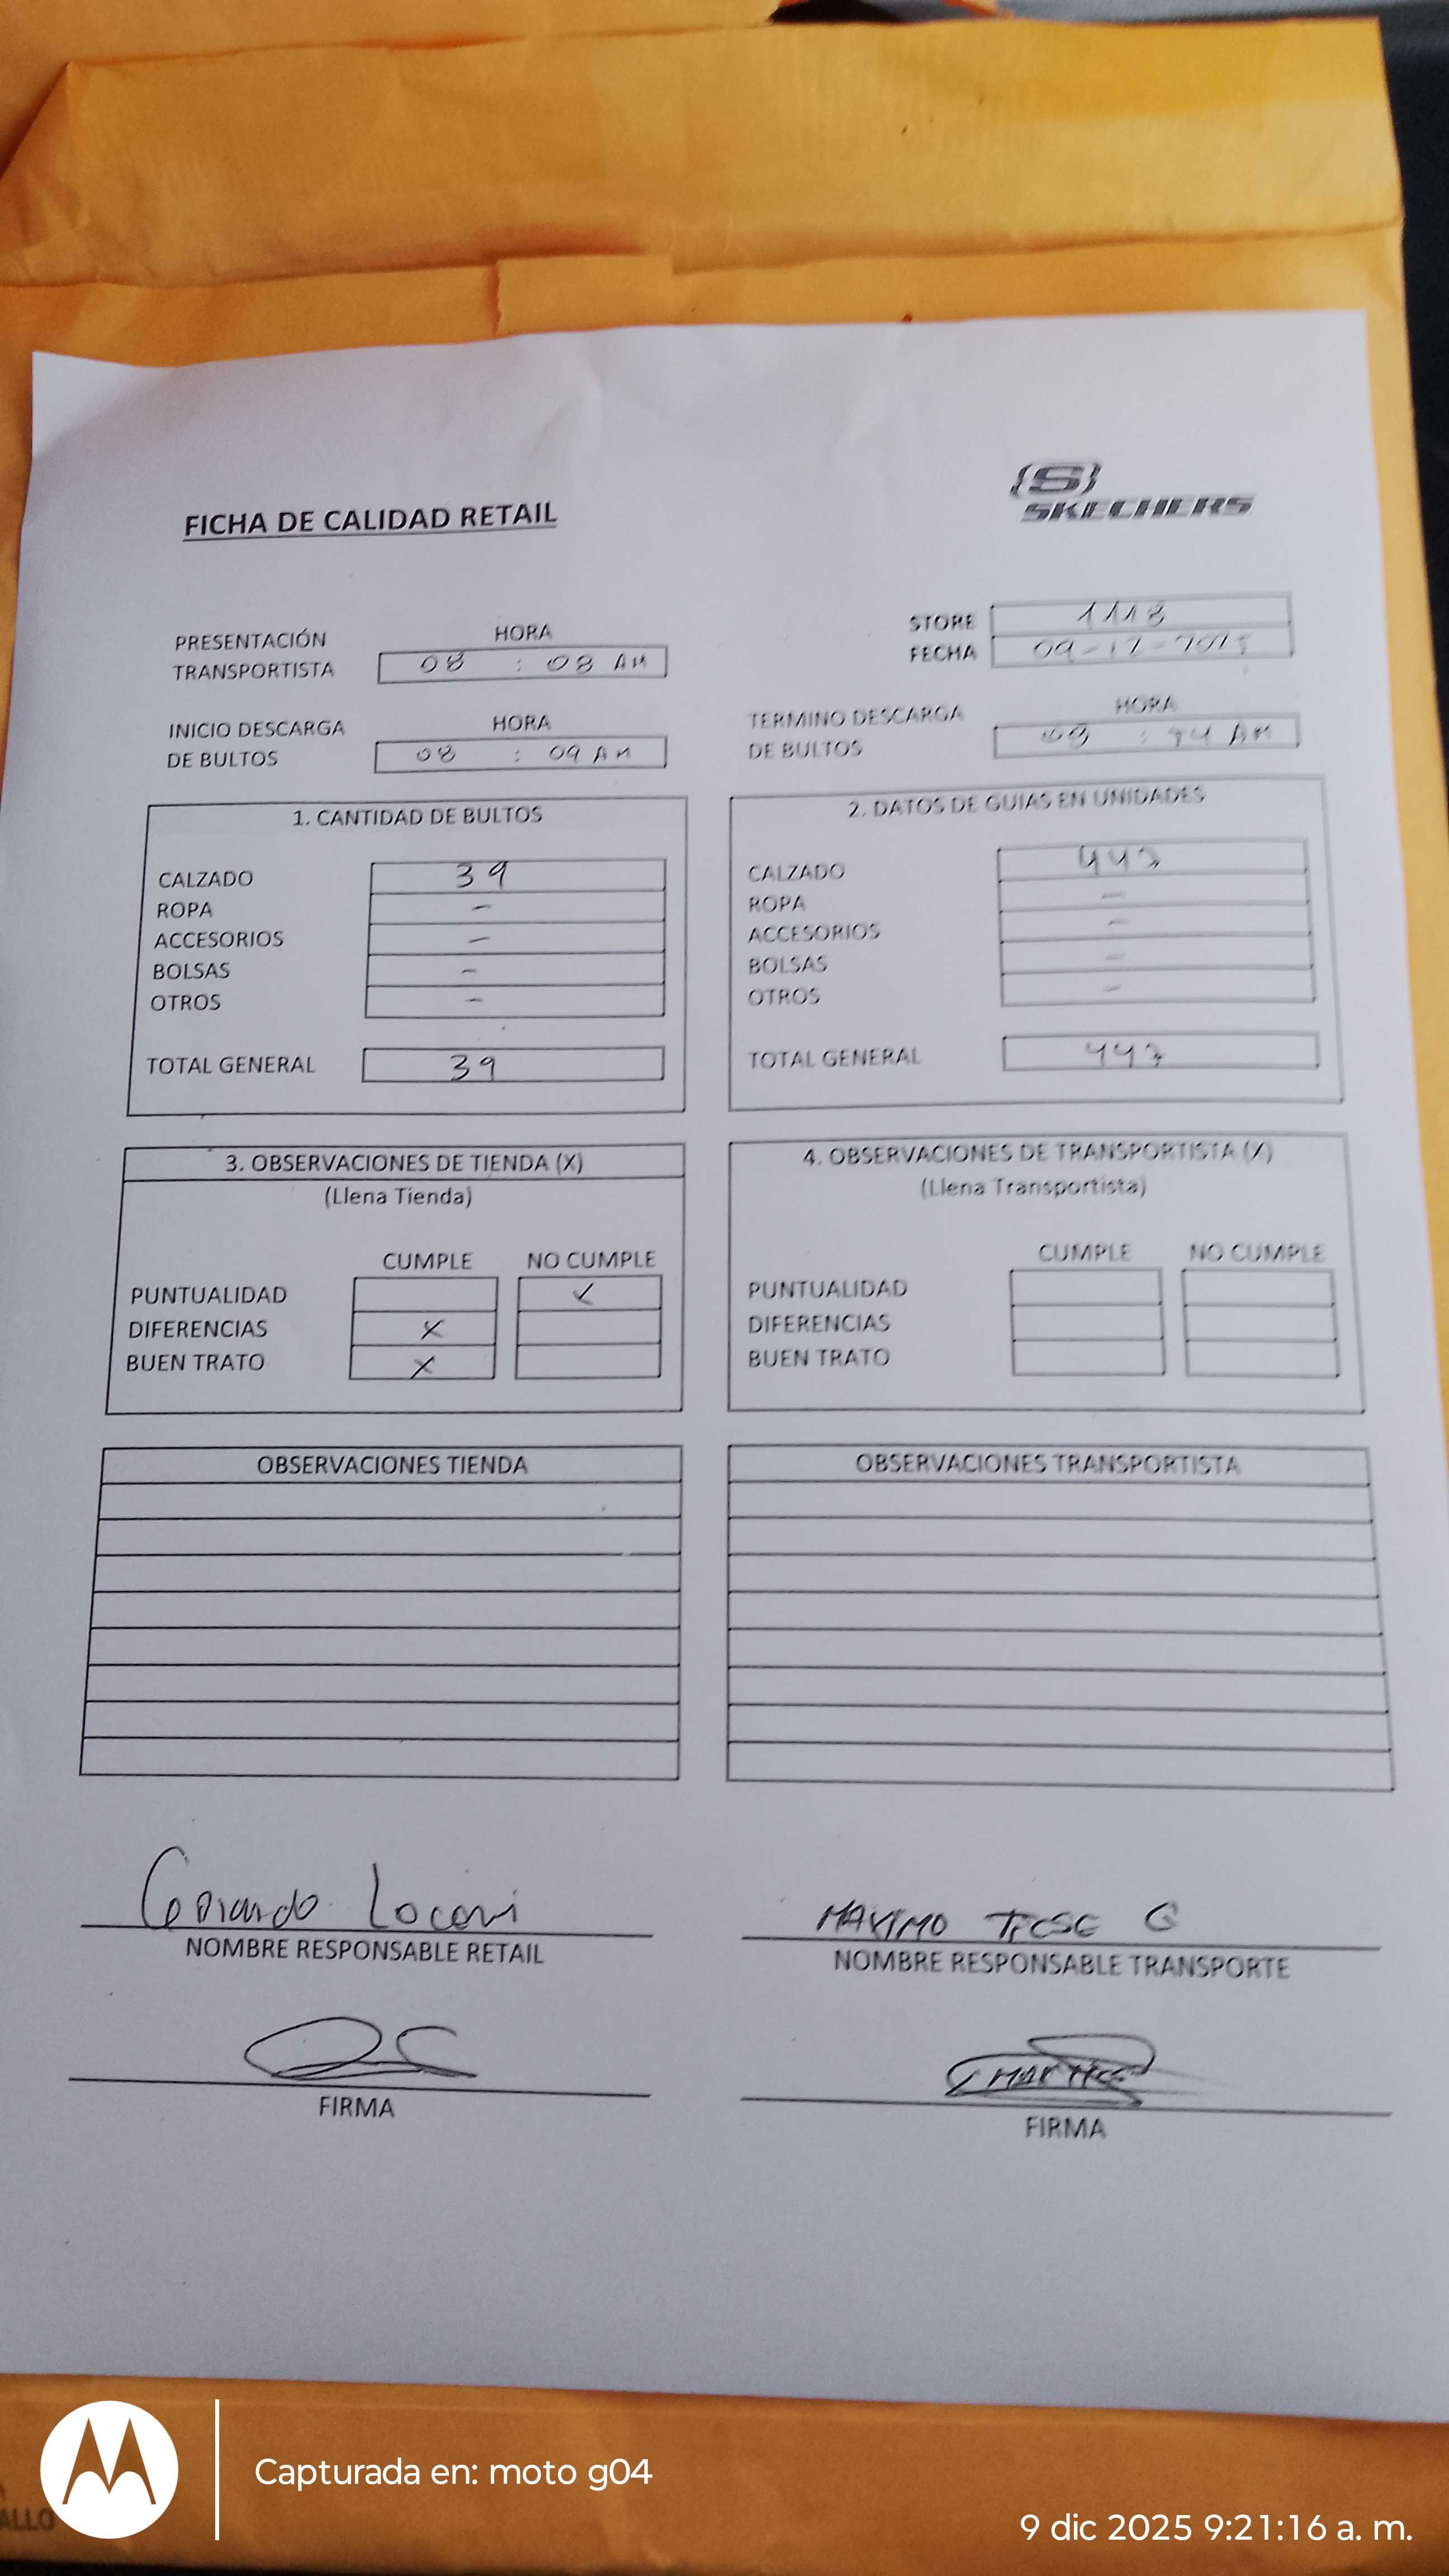 FICHA DE CALIDAD RETAIL
{S}
SKECHERS
STORE 1118
FECHA 09-12-2025
PRESENTACIÓN TRANSPORTISTA HORA 08 : 08 AM
INICIO DESCARGA DE BULTOS HORA 08 : 09 AM
TERMINO DESCARGA DE BULTOS HORA : AM
1. CANTIDAD DE BULTOS
CALZADO 39
ROPA -
ACCESORIOS -
BOLSAS -
OTROS -
TOTAL GENERAL 39
2. DATOS DE GUIAS EN UNIDADES
CALZADO 447
ROPA -
ACCESORIOS -
BOLSAS -
OTROS -
TOTAL GENERAL 447
3. OBSERVACIONES DE TIENDA (X)
(Llena Tienda)
CUMPLE NO CUMPLE
PUNTUALIDAD X
DIFERENCIAS X
BUEN TRATO X
4. OBSERVACIONES DE TRANSPORTISTA (X)
(Llena Transportista)
CUMPLE NO CUMPLE
PUNTUALIDAD
DIFERENCIAS
BUEN TRATO
OBSERVACIONES TIENDA
OBSERVACIONES TRANSPORTISTA
NOMBRE RESPONSABLE RETAIL
MAXIMO G
NOMBRE RESPONSABLE TRANSPORTE
FIRMA
FIRMA
Capturada en: moto g04
9 dic 2025 9:21:16 a. m.